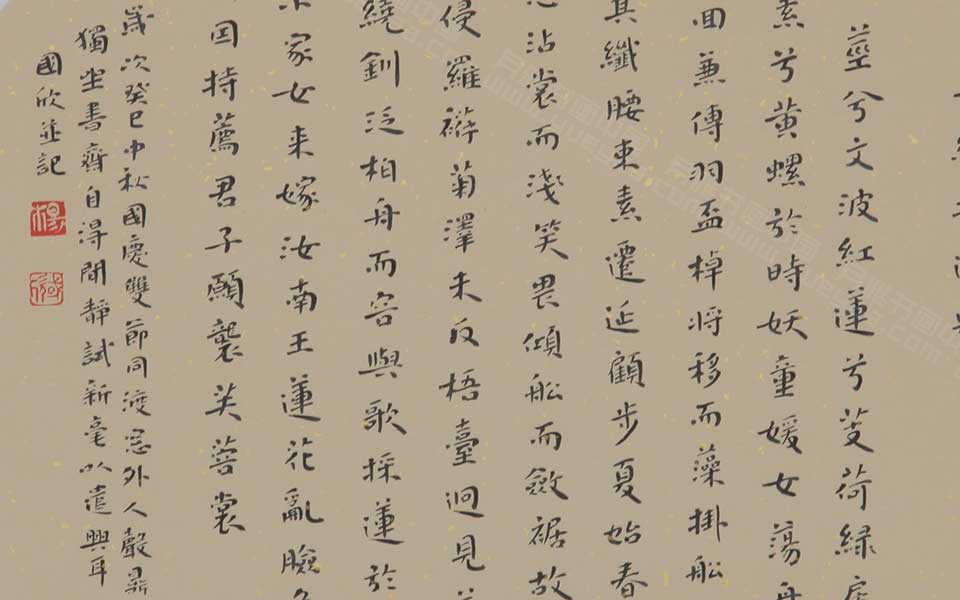 莖兮文波紅蓮兮芰荷綠房
素兮黃螺於時妖童媛女蕩舟
回兼傳羽盃棹将移而藻掛船
其纖腰束素遷延顧步夏始春
恐沾裳而淺笑畏傾船而斂裾故
侵羅袸菊澤未反梧臺迥見
繞釧泛柏舟而容與歌採蓮於
家女来嫁汝南王蓮花亂臉色
因持薦君子願襲芙蓉裳
歲次癸巳中秋國慶雙節同渡窗外人聲鼎
獨坐書齋自得閒靜試新毫以遣興耳
國欣並記
楊